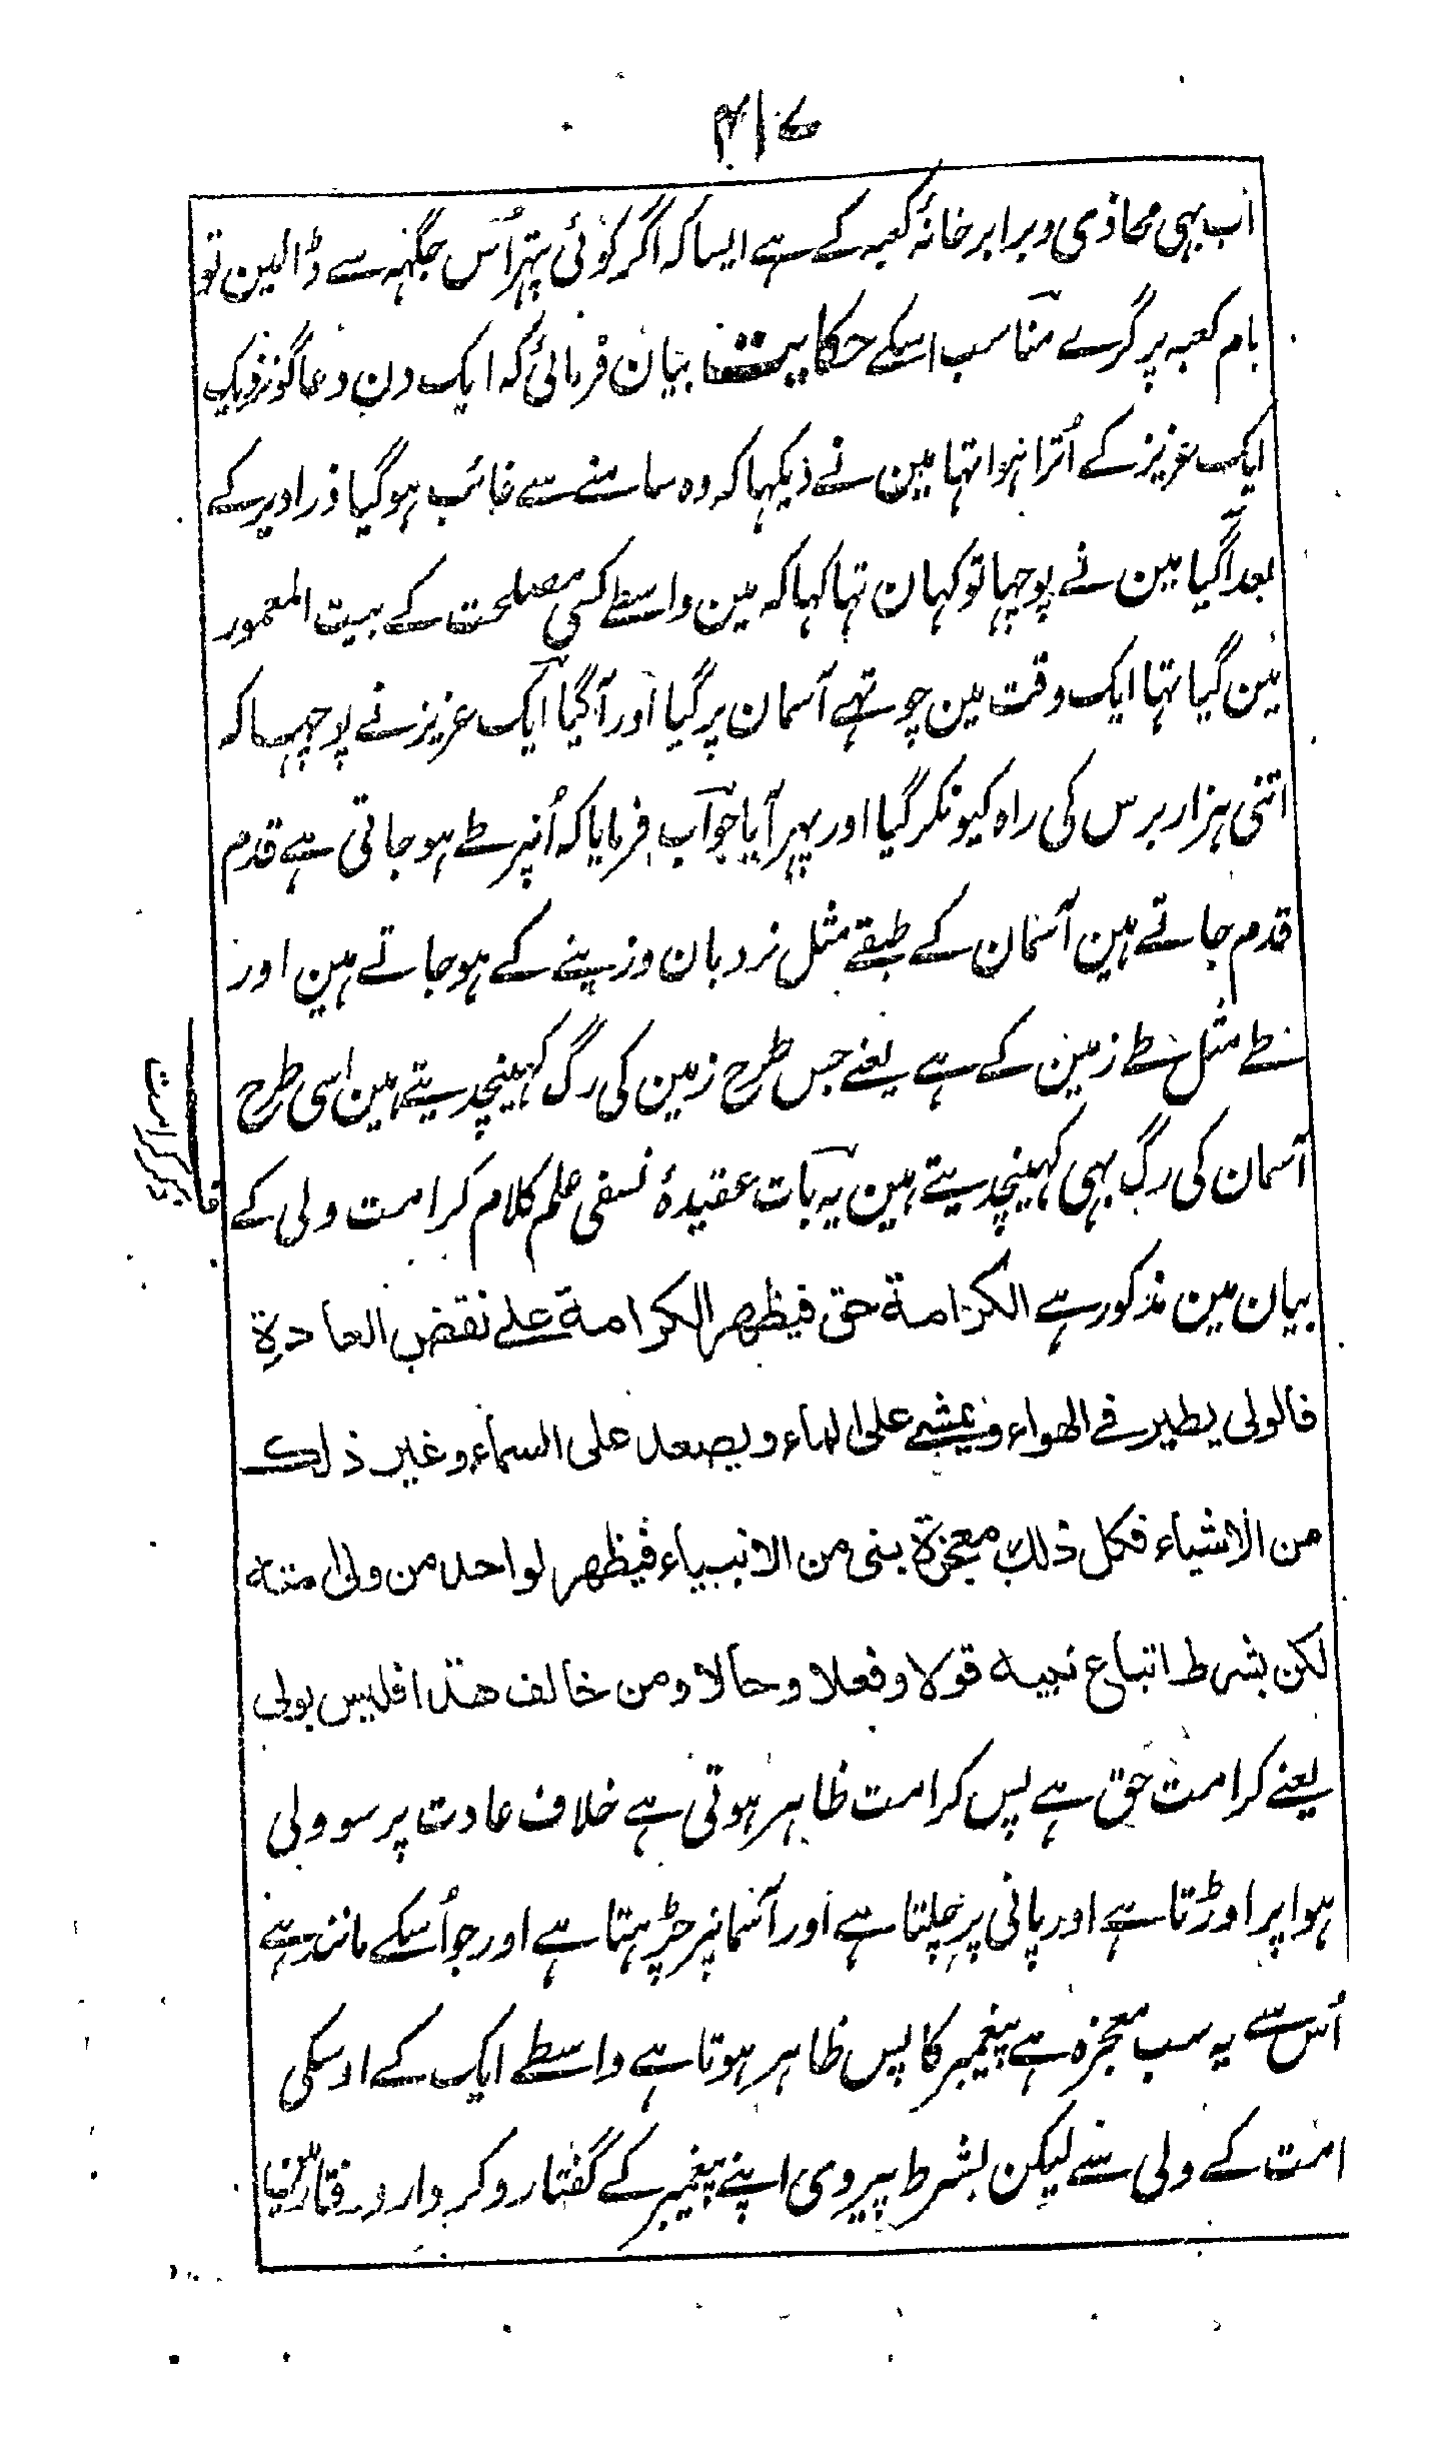 ۴۱۷
اب بہی محاذی وبرابر خانۂ کعبہ کے ہے ایسا کہ اگر کوئی پتہر اُس جگہہ سے ڈالین تو
بام کعبہ پر گرے مناسب اسکے حکایت بیان فرمائی کہ ایک دن دعاگو نزدیک
ایک عزیز کے اُترا ہوا تہا مین نے دیکہا کہ وہ سامنے سے غائب ہوگیا ذرا دیر کے
بعد آگیا مین نے پوچہا تو کہان تہا کہا کہ مین واسطے کسی مصلحت کے بیت المعمور
مین گیا تہا ایک وقت مین چوتہے آسمان پر گیا اور آگیا ایک عزیز نے پوچہا کہ
اتنی ہزار برس کی راہ کیونکر گیا اور پہر آیا جواب فرمایا کہ اُنپر طے ہو جاتی ہے قدم
قدم جاتے ہین آسمان کے طبقے مثل نردبان وزینے کے ہو جاتے ہین اور
طے مثل طے زمین کے ہے یعنے جس طرح زمین کی رگ کہینچدیتے ہین اسی طرح
آسمان کی رگ بہی کہینچدیتے ہین یہ بات عقیدۂ نسفی علم کلام کرامت ولی کے
بیان مین مذکور ہے الکرامة حق فیظهر الکرامة علے نقض العادة
فالولی یطیر فی الهواء ویمشے علی الماء ویصعد علی السماء وغیر ذلک
من الاشیاء فکل ذلک معجزة بنی من الانبیاء فیظهر لواحد من ولی امته
لکن بشرط اتباع نبیه قولا وفعلا وحالا ومن خالف هذا فلیس بولی
یعنے کرامت حق ہے پس کرامت ظاہر ہوتی ہے خلاف عادت پر سو ولی
ہوا پر اوڑتا ہے اور پانی پر چلتا ہے اور آسمانپر چڑہتا ہے اور جو اُسکے مانند ہے
اُس سے یہ سب معجزہ ہے پیغمبر کا پس ظاہر ہوتا ہے واسطے ایک کے اوسکی
امت کے ولی سے لیکن بشرط پیروی اپنے پیغمبر کے گفتار و کردار و رفتار مین